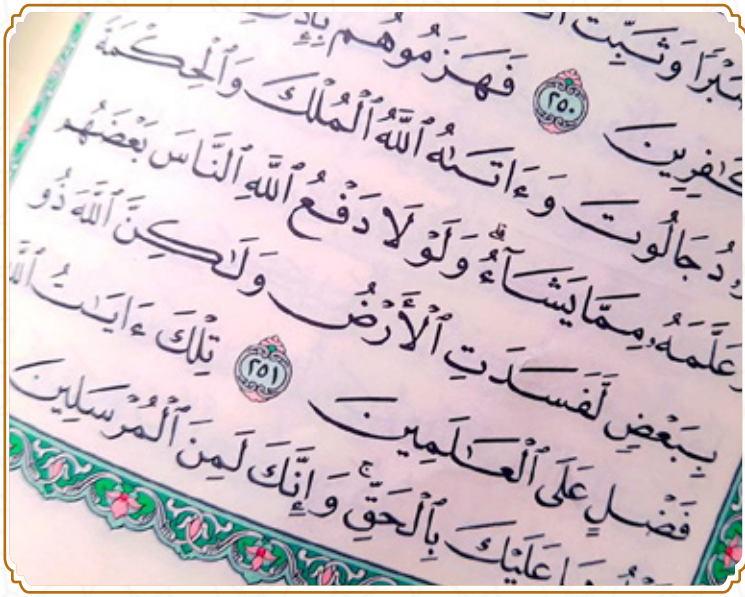 وَثَبِّتْ
٢٥٠ فَهَزَمُوهُم
جَالُوتَ وَءَاتَىٰهُ ٱللَّهُ ٱلْمُلْكَ وَٱلْحِكْمَةَ
وَعَلَّمَهُۥ مِمَّا يَشَآءُ ۗ وَلَوْلَا دَفْعُ ٱللَّهِ ٱلنَّاسَ بَعْضَهُم
بِبَعْضٍ لَّفَسَدَتِ ٱلْأَرْضُ وَلَٰكِنَّ ٱللَّهَ ذُو
فَضْلٍ عَلَى ٱلْعَٰلَمِينَ ٢٥١ تِلْكَ ءَايَٰتُ
عَلَيْكَ بِٱلْحَقِّ ۚ وَإِنَّكَ لَمِنَ ٱلْمُرْسَلِينَ